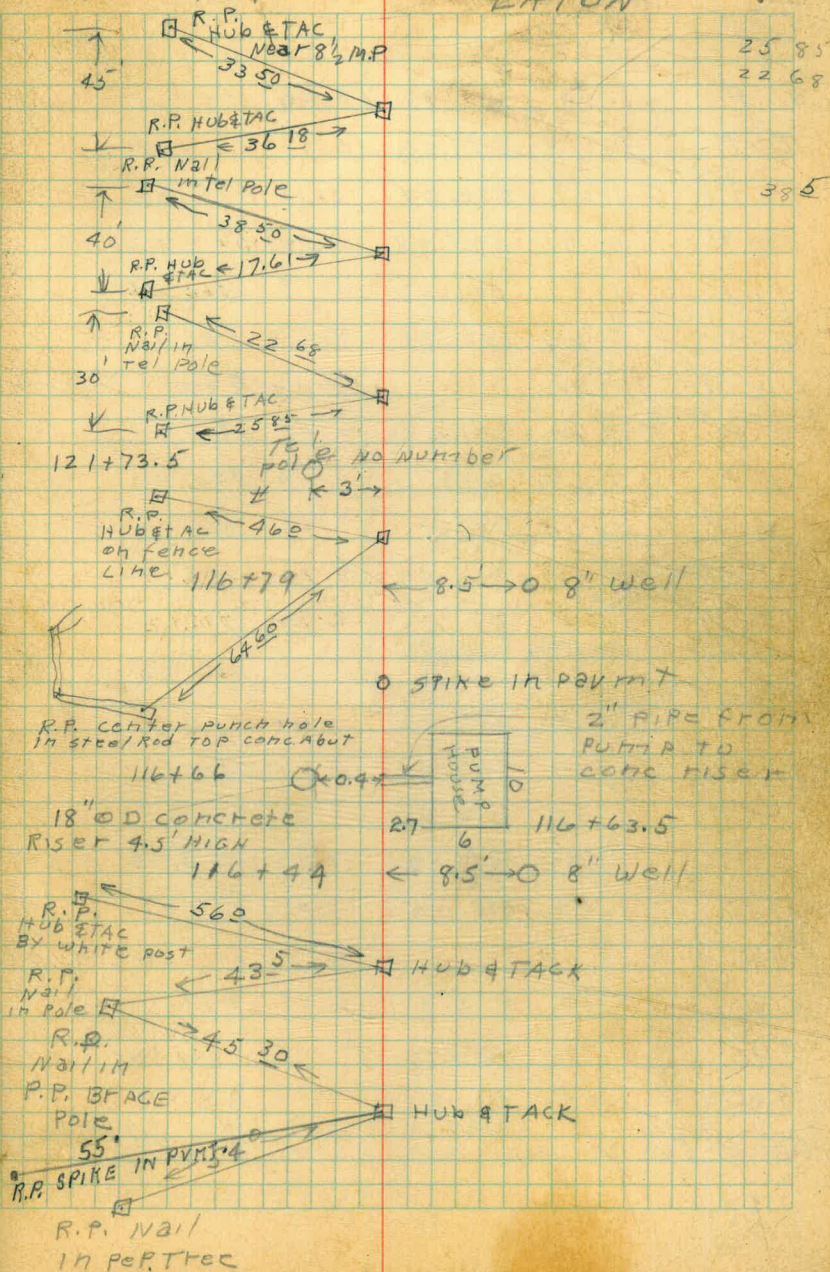 EATON
R.P.
Hub & TAC
Near 8½ M.P
33 50
45'
25 85
22 68
R.P. Hub & TAC
36 18
R.P. Nail
in Tel Pole
38 5
38 50
40'
R.P. Hub
& TAC
17.61
R.P.
Nail in
Tel Pole
22 68
30'
R.P. Hub & TAC
25 85
121+73.5
Tele
pole No Number
3'
R.P.
Hub & TAC
on fence
Line
46 0
116+79
8.5' 8" Well
64 60
SPIKE in pavmt
R.P. center punch hole
in steel Rod Top conc. Abut
2" PIPE from
Pump to
conc riser
116+66
0.4
PUMP
HOUSE
10
18" O D concrete
Riser 4.5' HIGH
2.7
6
116+63.5
116+44
8.5' 8" Well
R.P.
Hub & TAC
By white post
56 0
43 5
HUB & TACK
R.P.
Nail
in Pole
45 30
R.P.
Nail in
P.P. BrACE
Pole
HUB & TACK
55'
R.P. SPIKE IN PVMT.
54 0
R.P. Nail
in PeP. Tree